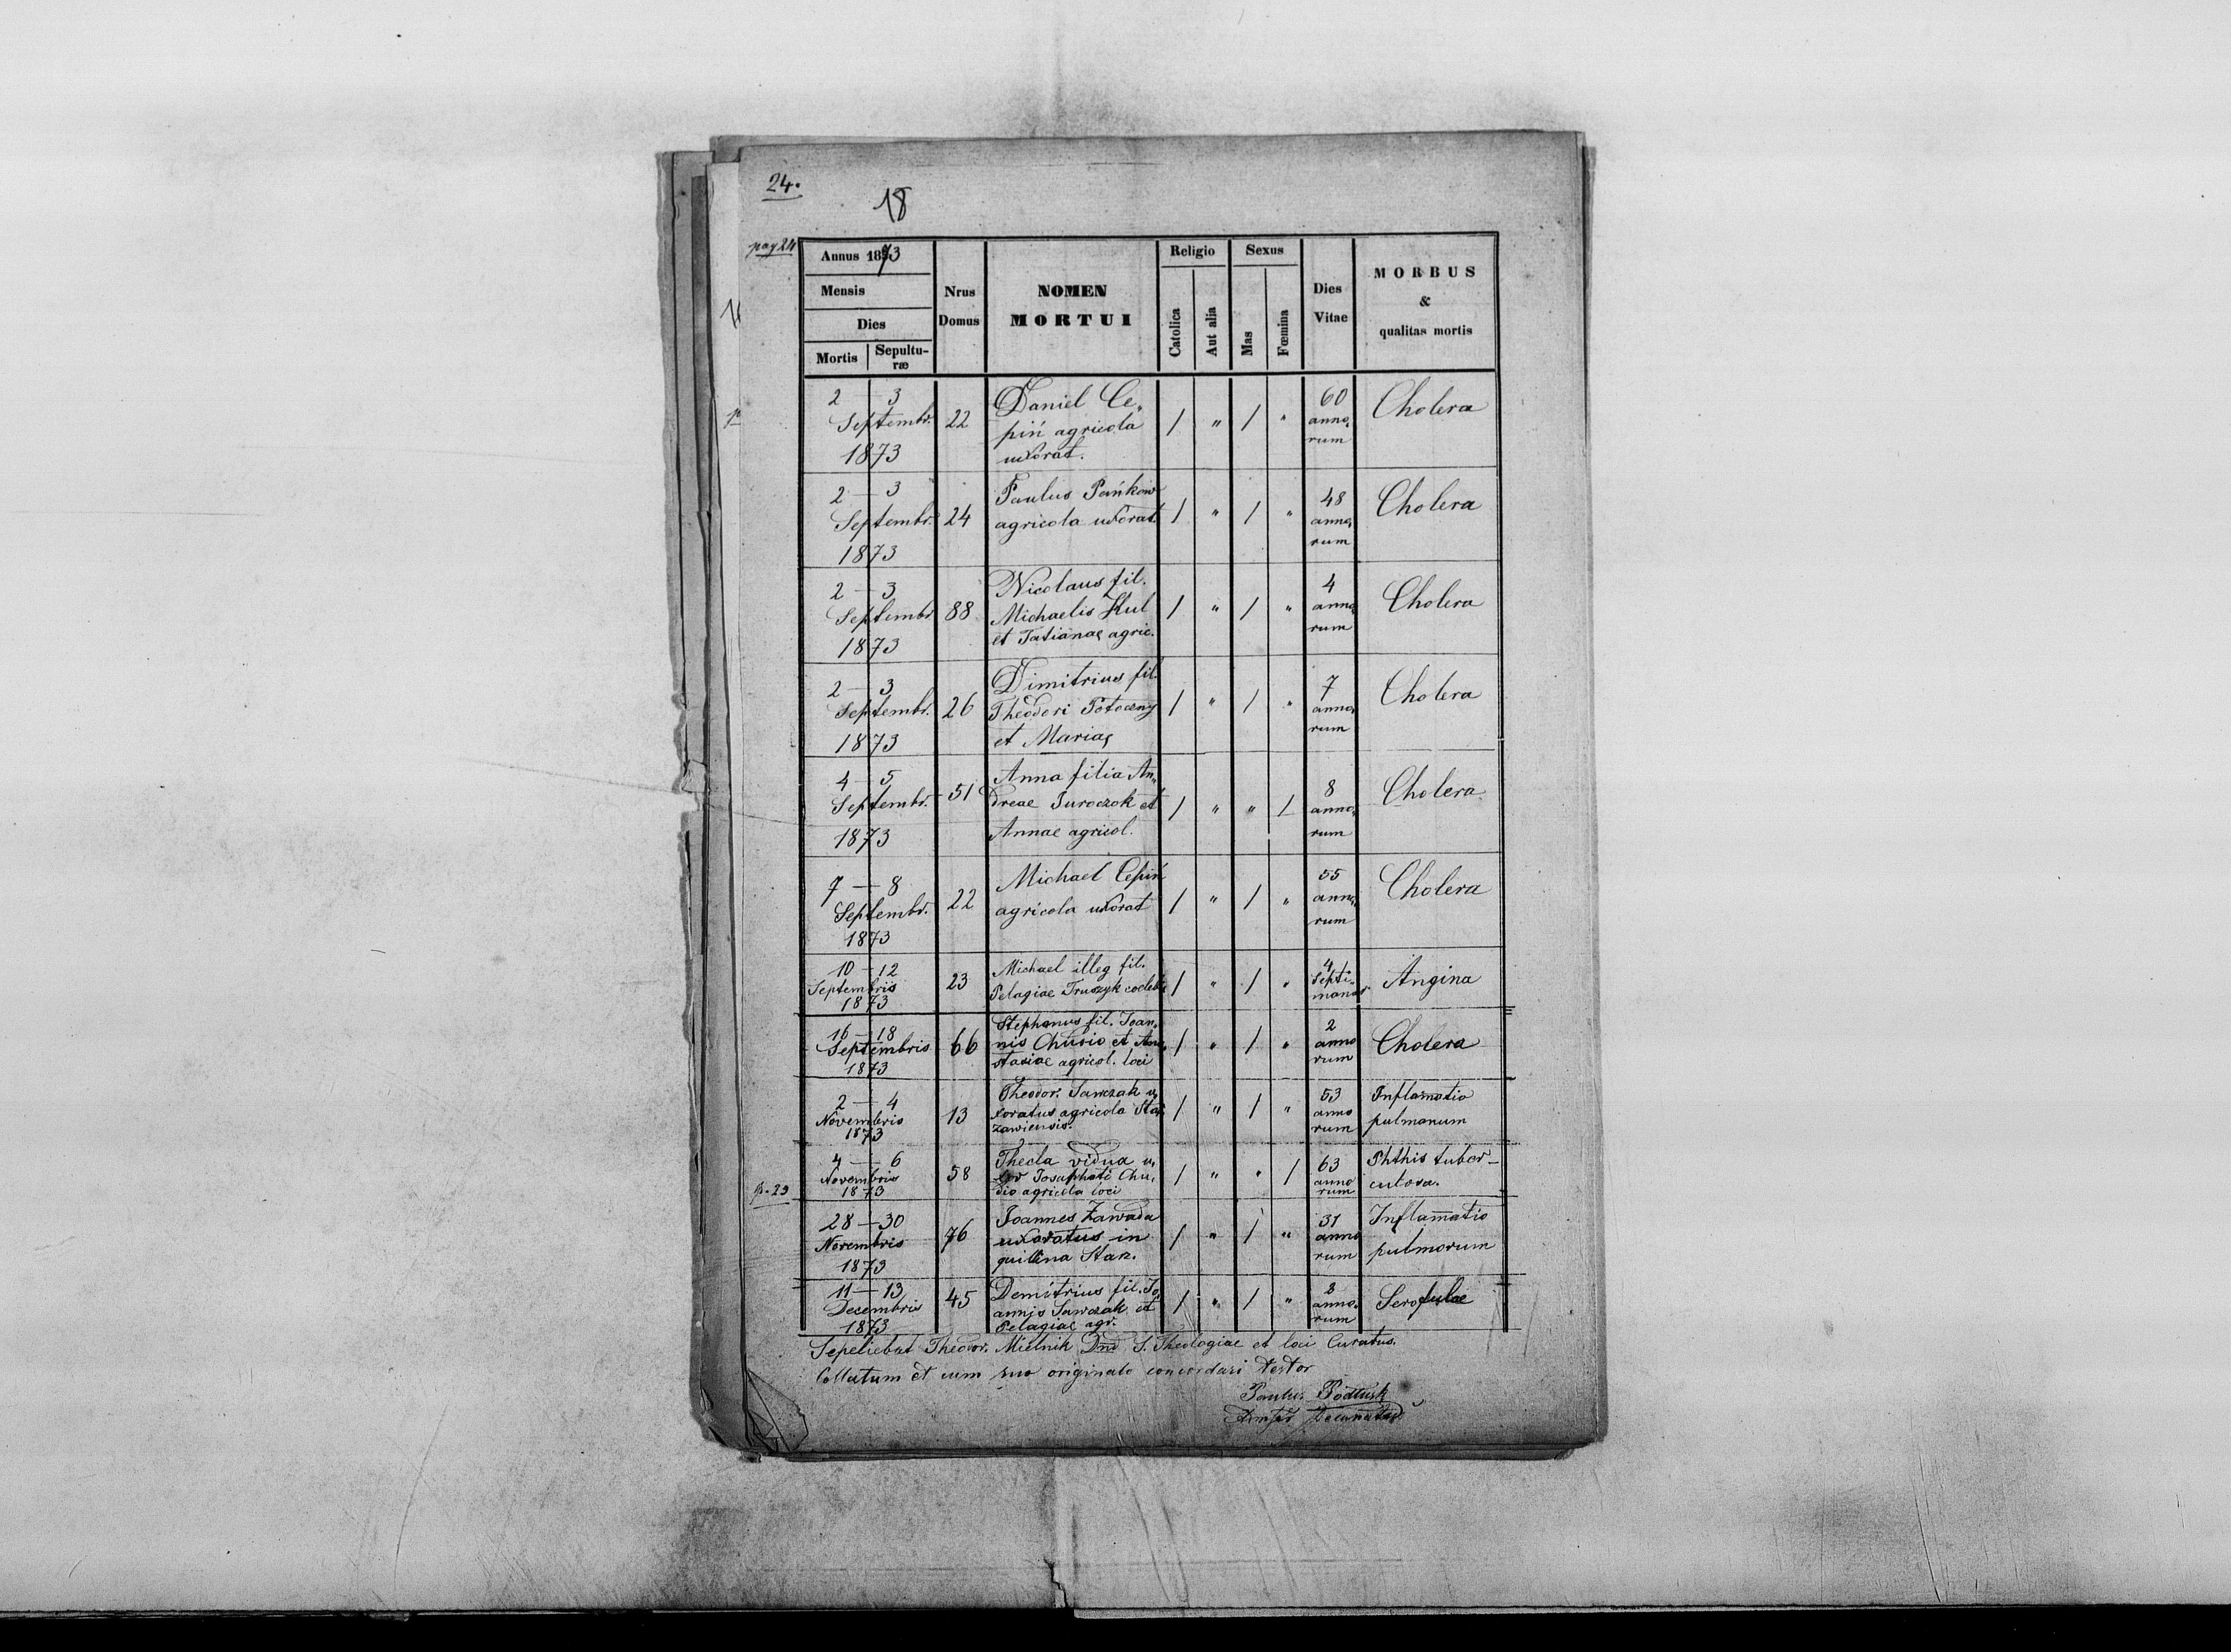 24.
18
pag 24
Annus 1873
Mensis
Dies
Mortis Sepultu-
ræ
Nrus
Domus
NOMEN
MORTUI
Religio
Catolica
Aut alia
Sexus
Mas
Fœmina
Dies
Vitae
MORBUS
&
qualitas mortis
2 3
Septembr.
1873
22
Daniel Ce„
piń agricola
uxorat.
/ " / "
60
anno„
rum
Cholera
2 — 3
Septembr.
1873
24
Paulus Pańków
agricola uxorat.
/ " / "
48
anno„
rum
Cholera
2 — 3
Septembr.
1873
88
Nicolaus fil.
Michaelis Kul
et Tatianae agric.
/ " / "
4
anno„
rum
Cholera
2 — 3
Septembr.
1873
26
Dimitrius fil.
Theodori Potoczny
et Mariae
/ " / "
7
anno„
rum
Cholera
4 — 5
Septembr.
1873
51
Anna filia An„
dreae Juroczok et
Annae agricol.
/ " " /
8
anno„
rum
Cholera
7 — 8
Septembr.
1873
22
Michael Cepiń
agricola uxorat
/ " / "
55
anno„
rum
Cholera
10 — 12
Septembris
1873
23
Michael illeg fil.
Pelagiae Truszyk
/ " / "
4
Septi„
manar.
Angina
16 — 18
Septembris
1873
66
Stephanus fil. Joan„
nis Chudio et Ana„
stasiae agricol. loci
/ " / "
2
anno
rum
Cholera
2 — 4
Novembris
1873
13
Theodor. Sawczak u„
xoratus agricola Sta„
zawiensis.
/ " / "
53
anno
rum
Inflamatio
pulmonum
4 — 6
Novembris
1873
58
Thecla vidua u„
xor Josaphati Chu„
dio agricola loci
/ " " /
63
anno
rum
Phthis tuber-
culosa.
p. 23
28 — 30
Novembris
1873
76
Joannes Zawada
uxoratus in
quilina Staz.
/ " / "
31
anno
rum
Inflam̄atio
pulmorum
11 — 13
Decembris
1873
45
Demitrius fil. Jo„
annis Sawczak et
Pelagiae agr.
/ " / "
8
anno„
rum
Scrofulae
Sepeliebat Theodor. Mielnik S. Theologiae et loci Curatus.
Collatum et cum suo originalo concordari testor
Paulus Podłusk